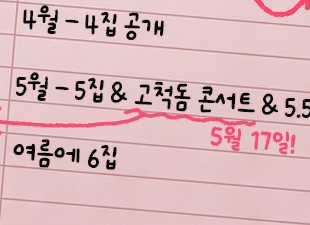 4월 - 4집 공개
5월 - 5집 & 고척돔 콘서트 & 5.5
5월 17일!
여름에 6집